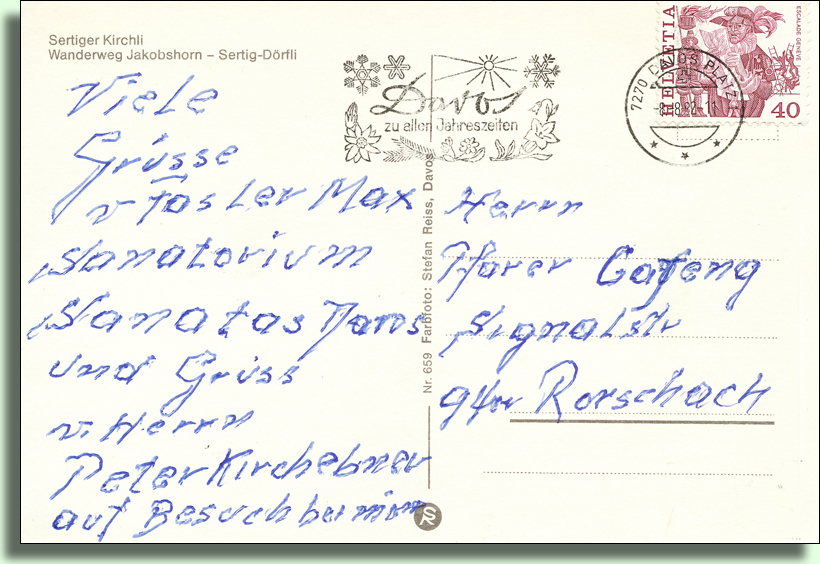 Sertiger Kirchli
Wanderweg Jakobshorn – Sertig-Dörfli
Viele
Grüsse
v Tosler Max
Sanatorium
Sanatas Davos
und Grüss
v. Herrn
Peter Kirchebner
auf Besuch bei mir
Nr. 659 Farbfoto: Stefan Reiss, Davos
SR
Davos
zu allen Jahreszeiten
7270 DAVOS PLATZ 1
HELVETIA
ESCALADE GENÈVE
40
Herrn
Pfarer
Signalstr
Rorschach